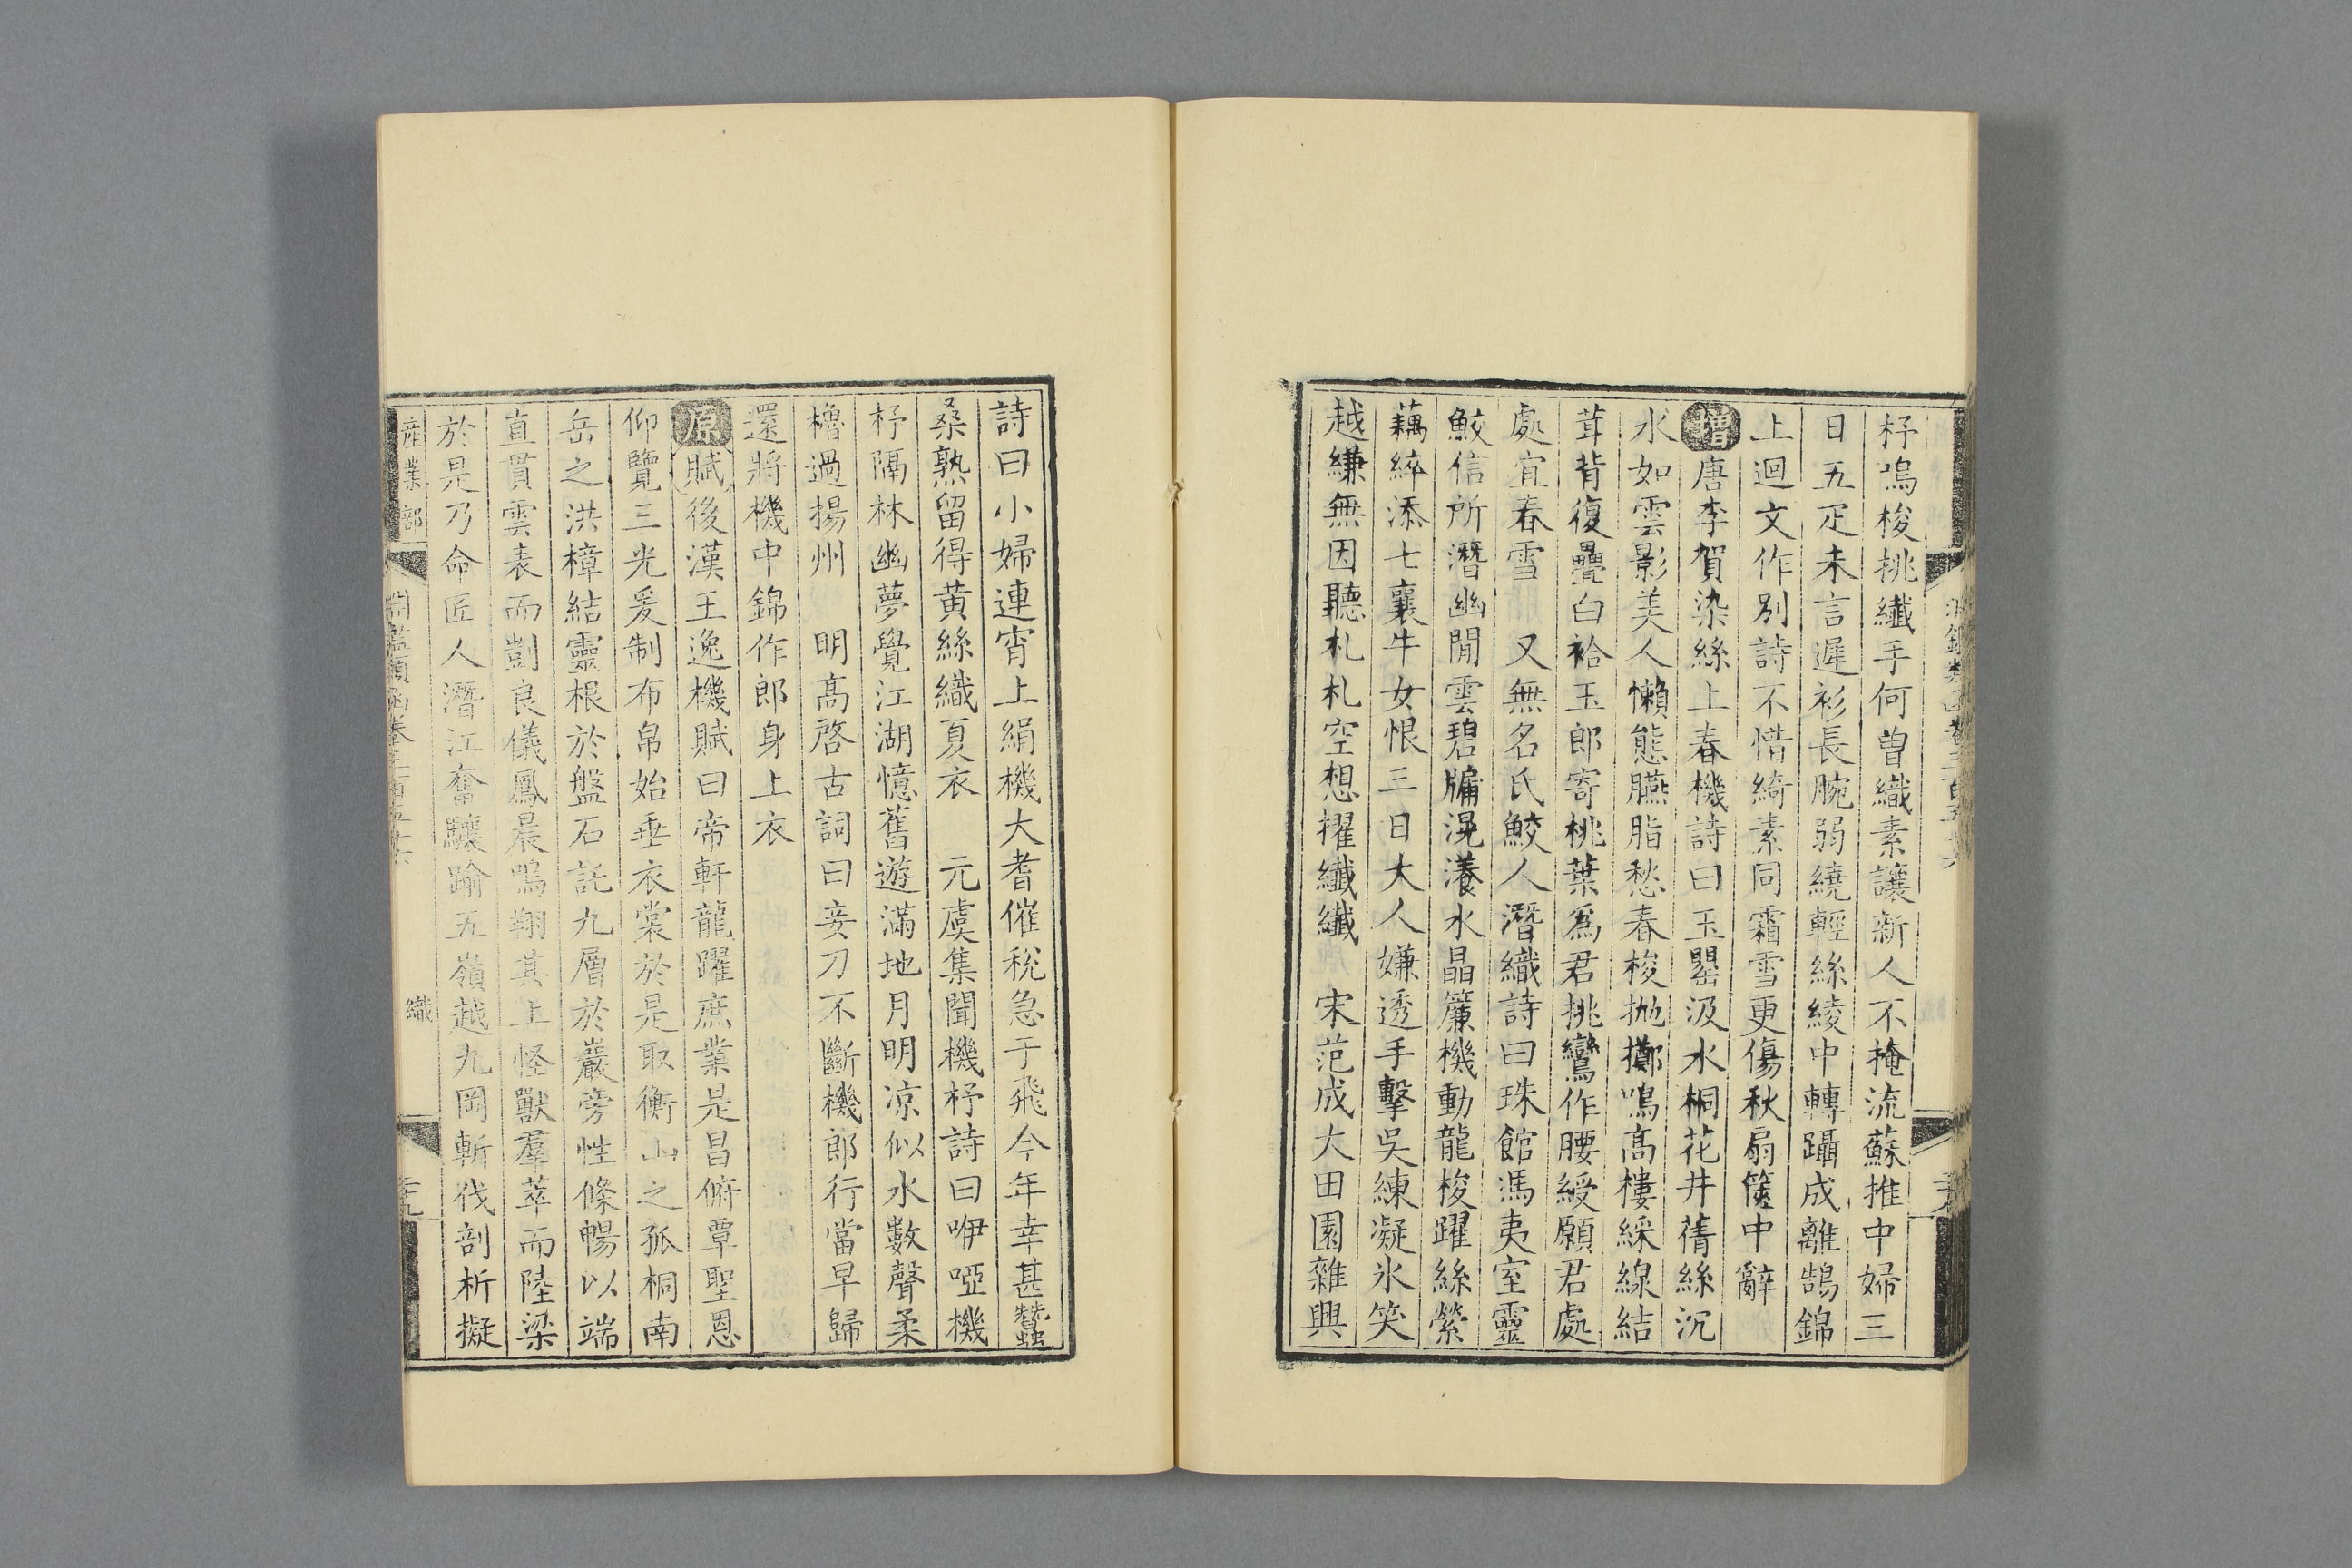 杼鳴梭挑纖手何曾織素讓新人不掩流蘇推中婦三
日五疋未言遲衫長腕弱繞輕絲綾中轉躡成離鵠錦
上迴文作別詩不惜綺素同霜雪更傷秋扇篋中辭
增唐李賀染絲上春機詩曰玉罌汲水桐花井蒨絲沉
水如雲影美人懶態臙脂愁春梭抛擲鳴高樓綵線結
茸背復疊白袷玉郎寄桃葉爲君挑鸞作腰綬願君處
處宜春雪 又無名氏鮫人潛織詩曰珠館馮夷室靈
鮫信所潛幽閒雲碧牖滉瀁水晶簾機動龍梭躍絲縈
藕綷添七襄牛女恨三日大人嫌透手擊吳練凝氷笑
越縑無因聽札札空想擢纖纖 宋范成大田園雜興
詩曰小婦連宵上絹機大耆催稅急于飛今年幸甚蠶
桑熟留得黃絲織夏衣 元虞集聞機杼詩曰咿啞機
杼隔林幽夢覺江湖憶舊遊滿地月明凉似水數聲柔
櫓過揚州 明高啓古詞曰妾刀不斷機郎行當早歸
還將機中錦作郎身上衣
原賦後漢王逸機賦曰帝軒龍躍庶業是昌俯覃聖恩
仰覽三光爰制布帛始垂衣裳於是取衡山之孤桐南
岳之洪樟結靈根於盤石託九層於巖旁性條暢以端
直貫雲表而剴良儀鳳晨鳴翔其上怪獸羣萃而陸梁
於是乃命匠人潛江奮驤踰五嶺越九岡斬伐剖析擬
産業部 淵鑑類函卷三百五十六 織